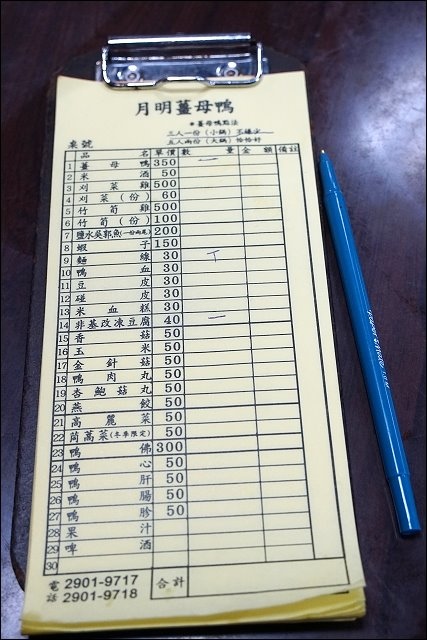 月明薑母鴨
●薑母鴨點法
三人一份(小鍋)
五人兩份(大鍋)恰恰好
桌號
品名 單價 數量 金額 備註
1 薑母鴨 350 一
2 米酒 50
3 刈菜雞 500
4 刈菜(份) 60
5 竹筍雞 500
6 竹筍(份) 100
7 鹽水吳郭魚(一份兩尾) 200
8 蝦子 150
9 麵線 30 T
10 鴨血 30
11 豆皮 30
12 碰皮 30
13 米血糕 30
14 非基改凍豆腐 40 一
15 香菇 50
16 玉米 50
17 金針菇 50
18 鴨肉丸 50
19 杏鮑菇丸 50
20 燕餃 50
21 高麗菜 50
22 茼萵菜(冬季限定) 50
23 鴨佛 300
24 鴨心 50
25 鴨肝 50
26 鴨腸 50
27 鴨胗 50
28 果汁
29 啤酒
30
電話 2901-9717
2901-9718
合計